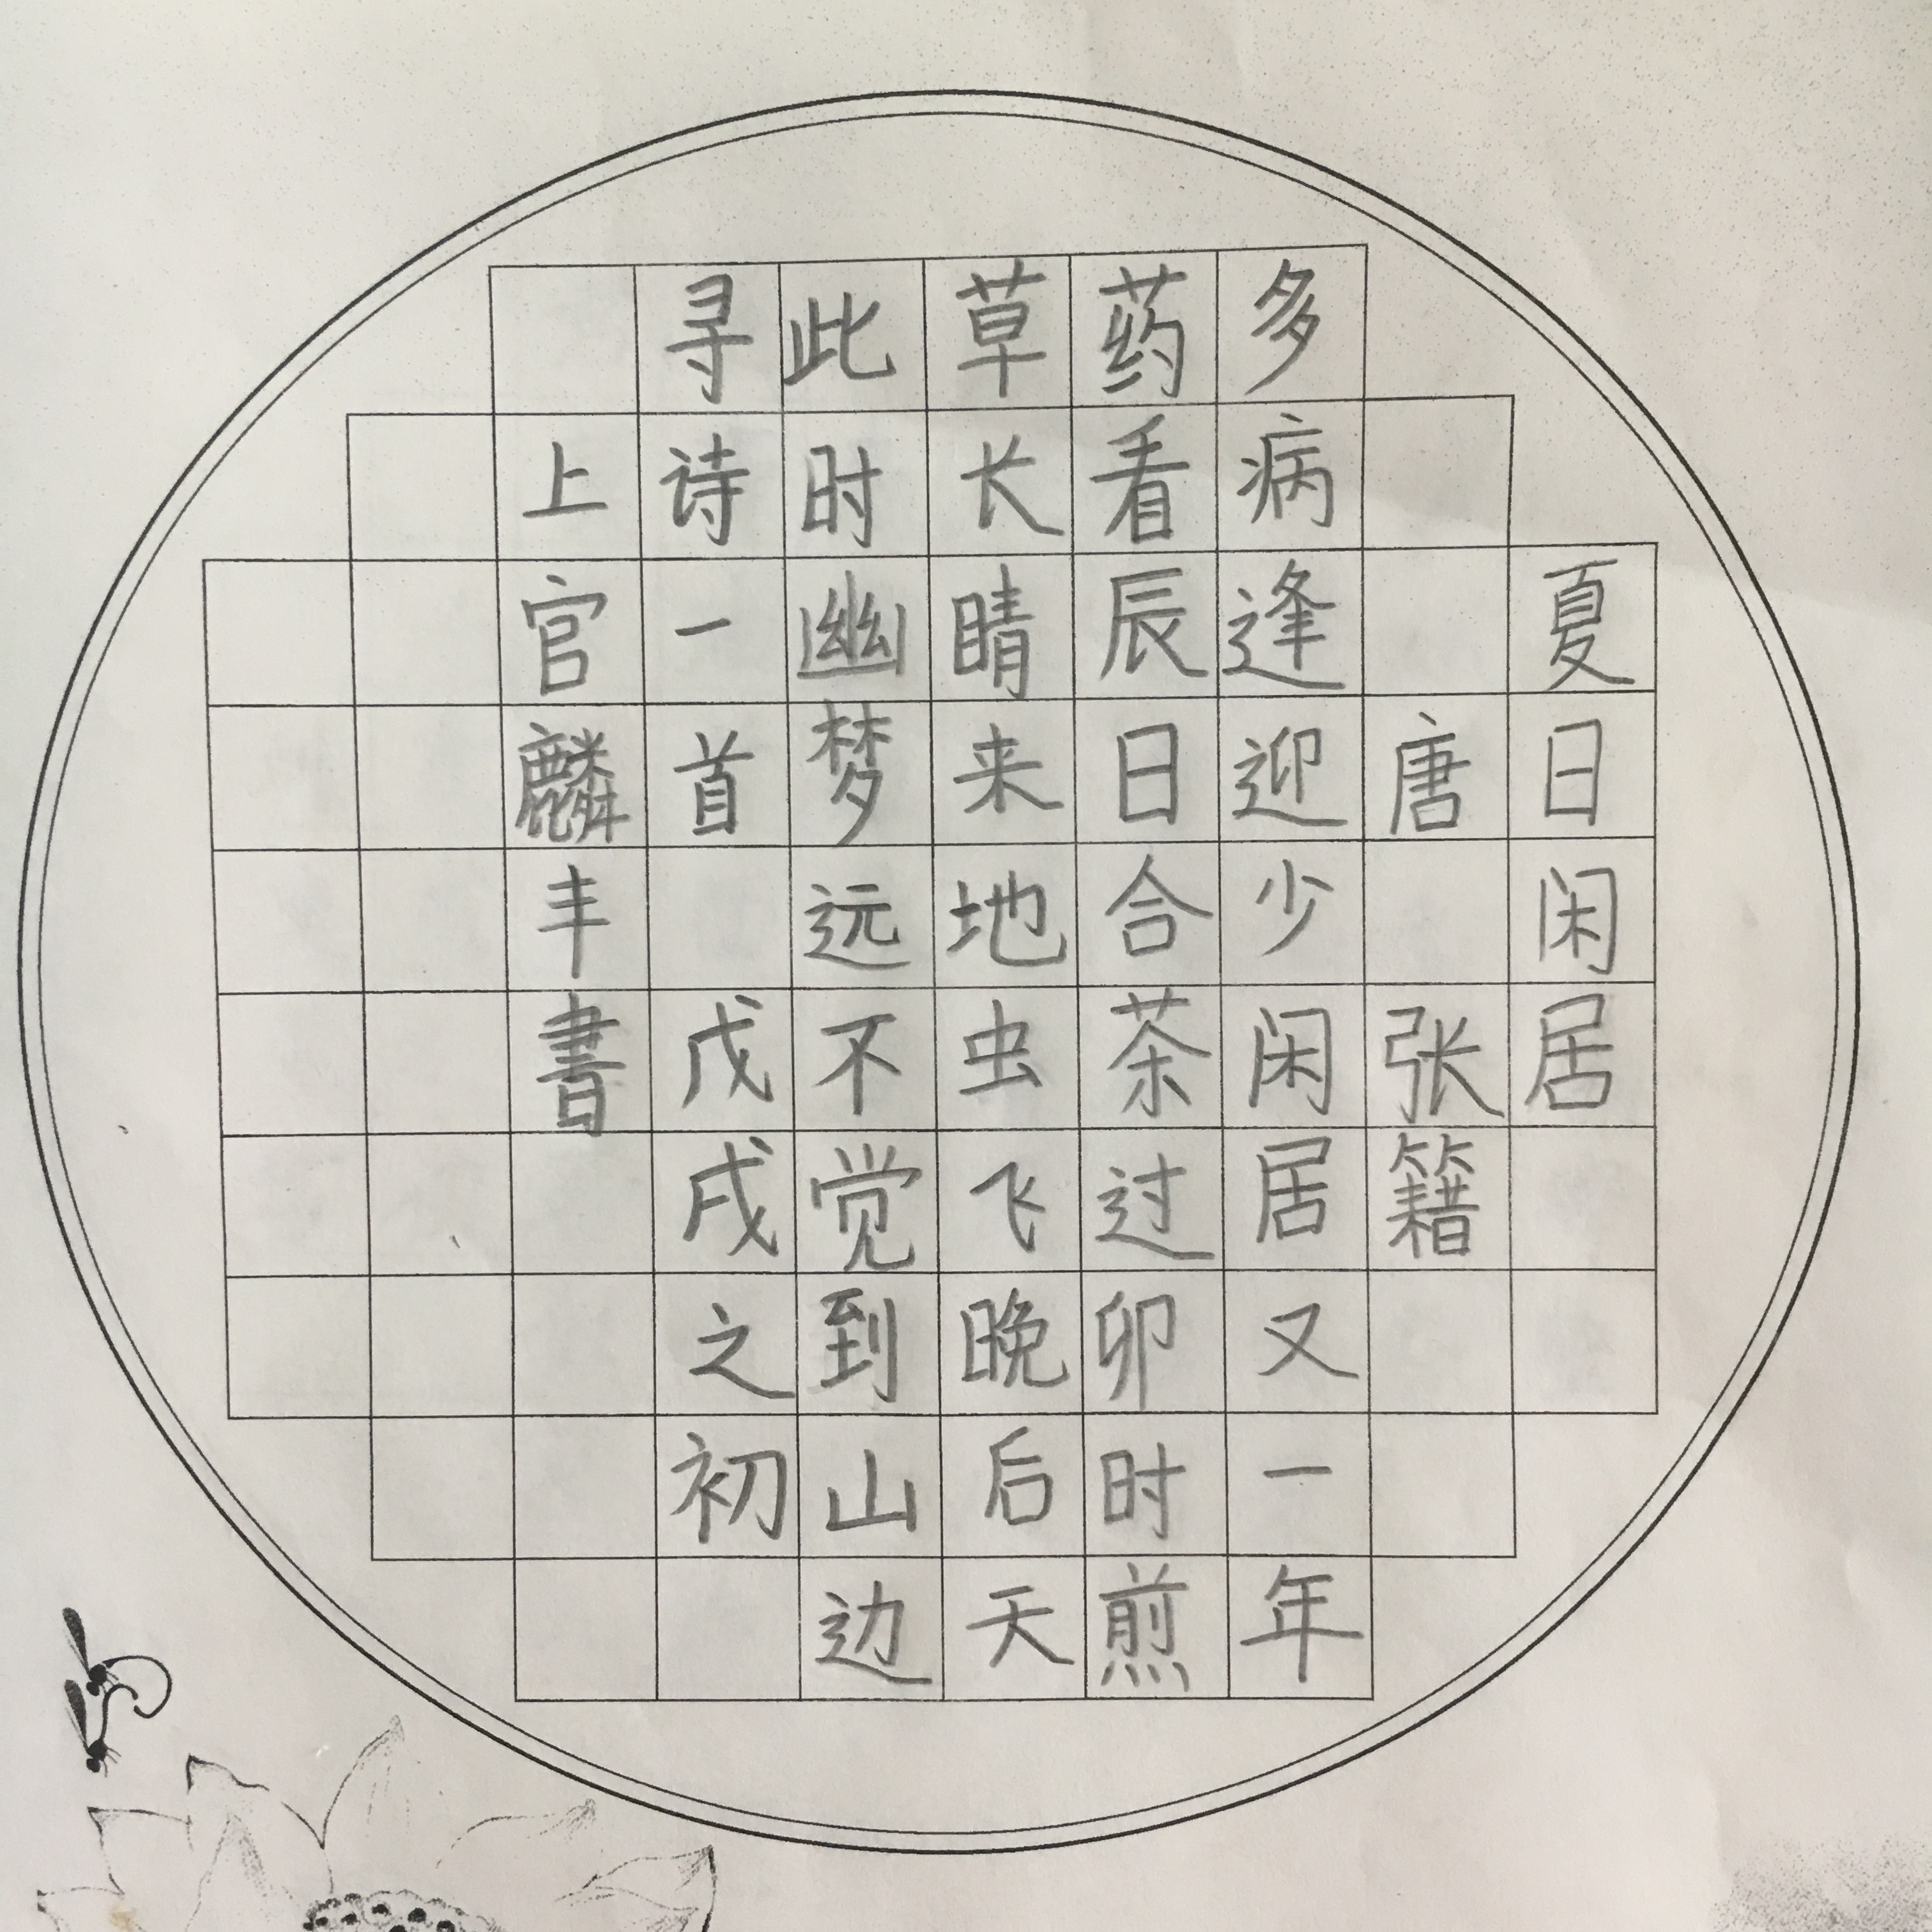 夏日闲居
唐 张籍
多病逢迎少闲居又一年
药看辰日合茶过卯时煎
草长睛来地虫飞晚后天
此时幽梦远不觉到山边
寻诗一首 戊戌之初
上官麟丰書